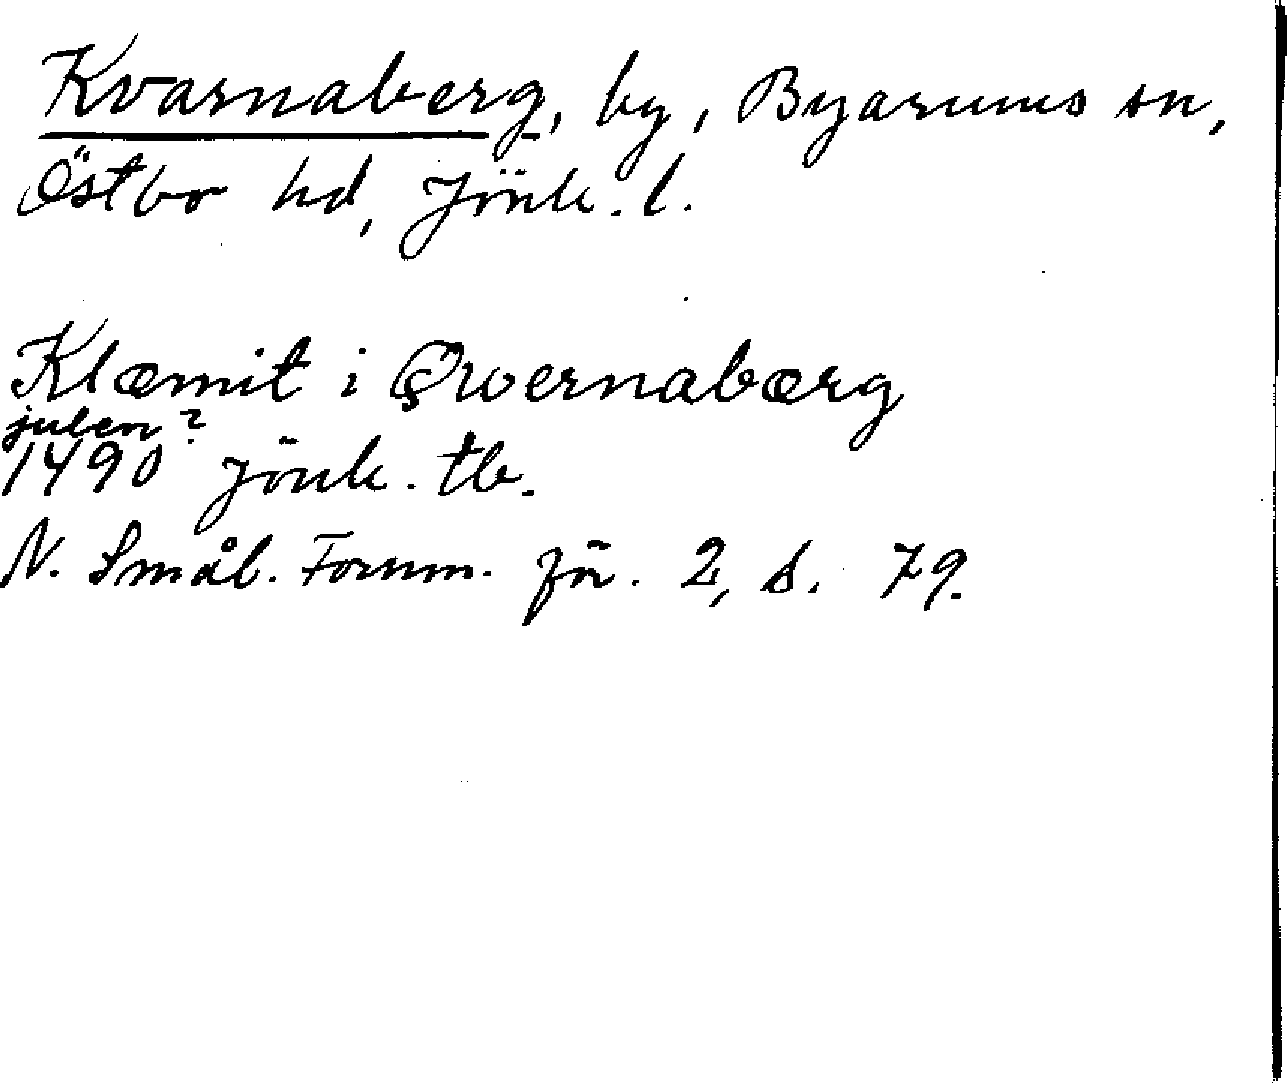 Kvarnaberg, by, Byarums sn,
Östbo hd, Jönk. l.
Klæmit i Qwernabærg
julen?
1490 Jönk. tb.
N. Smål. Fornm. för. 2, s. 79.